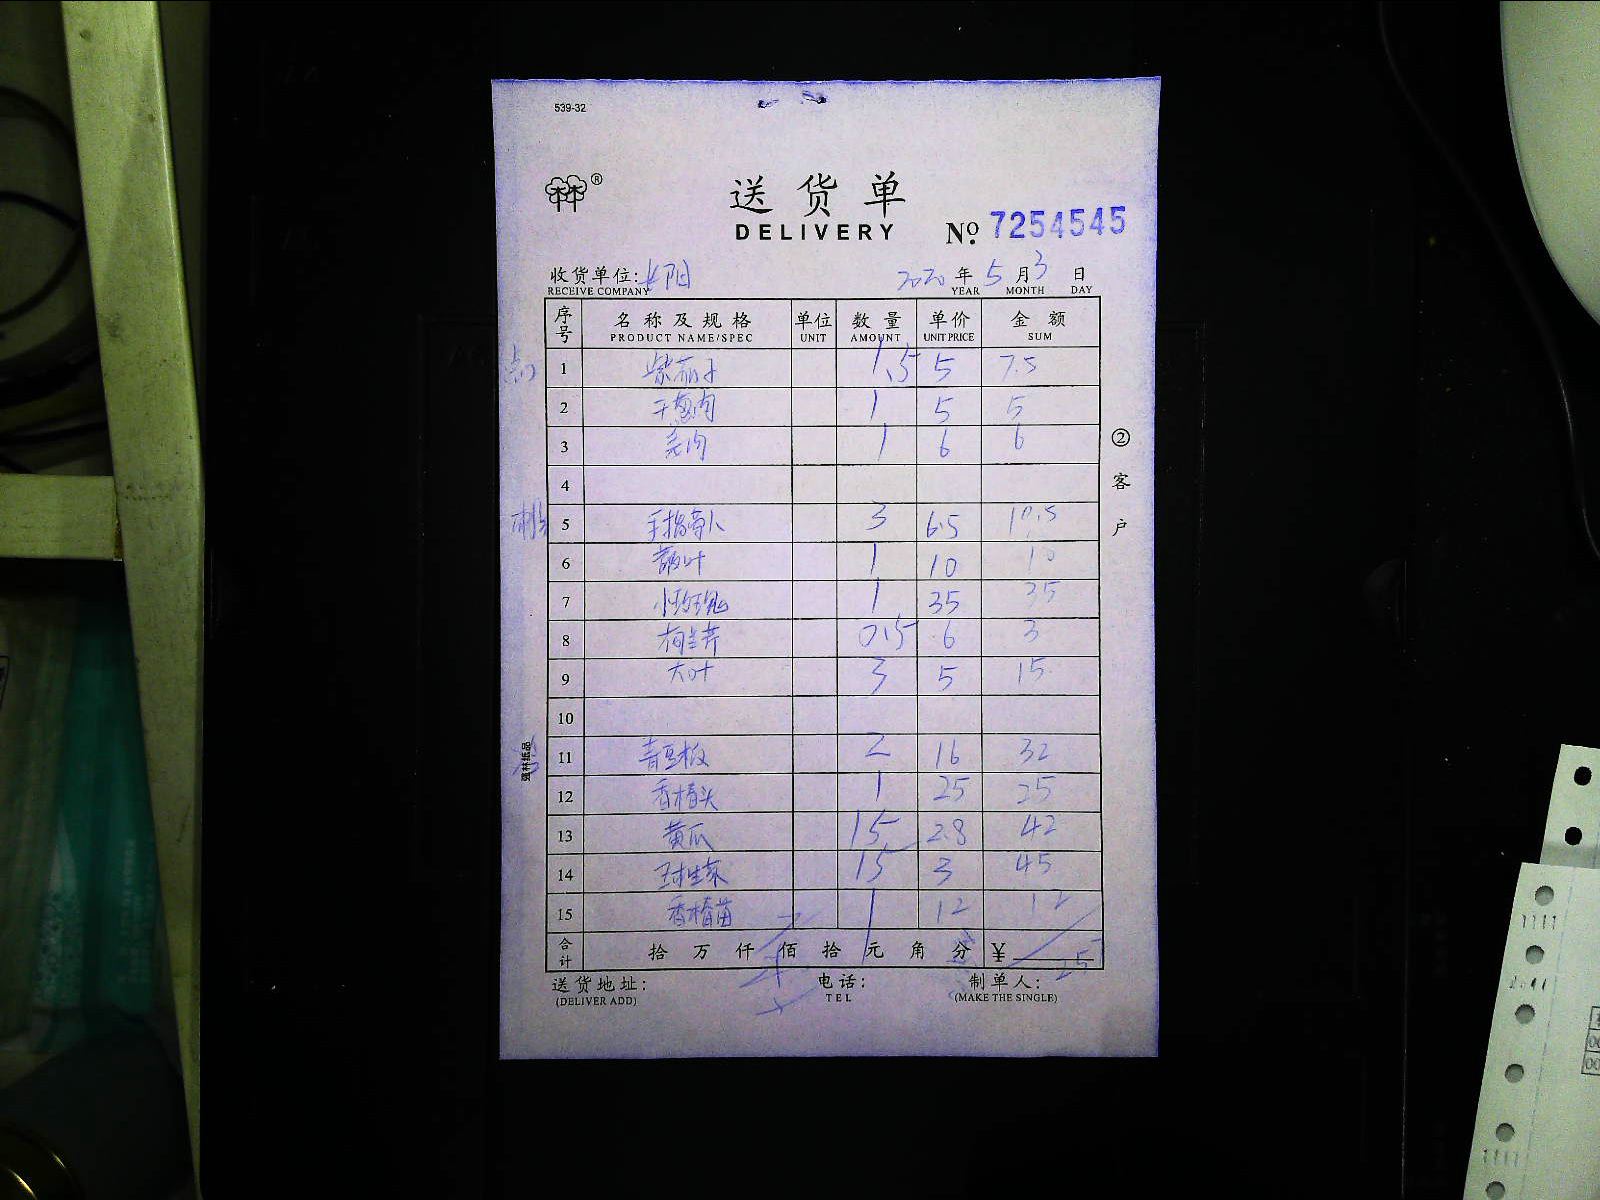 539-32
®
送货单
DELIVERY
No. 7254545
收货单位: 长阳 2020 年 5 月 3 日
RECEIVE COMPANY YEAR MONTH DAY
序号 名称及规格 单位 数量 单价 金额
PRODUCT NAME/SPEC UNIT AMOUNT UNIT PRICE SUM
1 紫茄子 1.5 5 7.5
2 干葱肉 1 5 5
3 姜肉 1 6 6
4
5 手指萝卜 3 6.5 10.5
6 1 10 10
7 小玫瑰 1 35 35
8 0.5 6 3
9 大叶 3 5 15
10
11 青豆板 2 16 32
12 香椿头 1 25 25
13 黄瓜 15 2.8 42
14 球生菜 15 3 45
15 香椿苗 1 12 12
合计 拾 万 仟 佰 拾 元 角 分 ¥
送货地址: 电话: 制单人:
(DELIVER ADD) TEL (MAKE THE SINGLE)
②客户
强林纸品